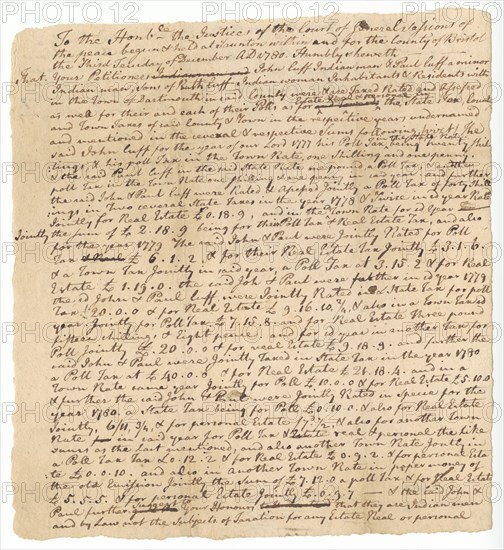 To the Honble the Justices of the Court of General Sessions of
the peace begun & held at Taunton within and for the County of Bristol
the Third Tuesday of December A.D. 1780. Humbly sheweth
That Your Petitioners John Cuff Indian man & Paul Cuff a minor
Indian man, Sons of Ruth Cuff Indian woman Inhabitants & Residents with
in the Town of Dartmouth in said County were & are Taxed Rated and Assessed
as well for their and each of their Polls as for Estate Real & personal the State Tax, County
and Town Taxes of said County & Town in the respective years undernamed
and mentioned in the several & respective Sums following viz. The
said John Cuff for the year of our Lord 1777 his Poll Tax, being twenty Shil
lings & his poll Tax in the Town Rate, one Shilling and sixpence
& the said Paul Cuff in the said State Rate in person, a Poll Tax, & another
poll Tax in the Town Rate one Shilling & six pence, in said year, and further
the said John & Paul Cuff were Rated & Assessed Jointly a Poll Tax of forty Shill
ings, in Two several State Taxes in the year 1778 & Twice in said Rate
Jointly for Real Estate £0.18.9, and in the Town Rate for sd Year
Jointly the Sum of £2.18.9 being for their Poll Tax & Real Estate Tax, and also
for the year 1779 The said John & Paul were Jointly Rated for Poll
Tax £6.1.2 & for their Real Estate Tax Jointly £3.1.6
& a Town Tax Jointly in said year, a Poll Tax at £3.15.2 & for Real
Estate £1.19.0. the said John & Paul were further in said year 1779
the sd John & Paul Cuff, were Jointly Rated in a State Tax for poll
Tax £20.0.0 & for Real Estate £9.16.10¾, & also in a Town Tax sd
year Jointly for Poll Tax, £7.15.8 and for Real Estate Three pound
fifteen shillings & Eight pence; and for sd year in another Tax for
Poll Jointly £20.0.0 and for real Estate £9.18.9. and further the
said John & Paul were Jointly Taxed in State Tax in the year 1780
a Poll Tax at £40.0.8 & for Real Estate £21.18.4. and in a
Town Rate same year Jointly for Poll £10.0.0 & for Real Estate £5.10.0
& further the said John & Paul were Jointly Rated in specie for the
year 1780, a State Tax being for Poll £0.10.0 & also for Real Estate
Jointly, 6/11¾, & for personal Estate 1/7½, & also for another Town
Rate in said year for Poll Tax & Estate real & personal the like
sums as the Last mentioned, and also another Town Rate Jointly, in
a Poll Tax at £0.12.2 & for Real Estate £0.9.2. & for personal Esta
te £0.0.10. and also in another Town Rate in paper money of
the old Emission Jointly the Sum of £7.12.0 a poll Tax & for Real Estate
£5.5.5. & for personal Estate Jointly £0.9.7 — & the said John &
Paul further Suggest Your Honours that they are Indian men
and by Law not the Subjects of Taxation for any Estate Real or personal